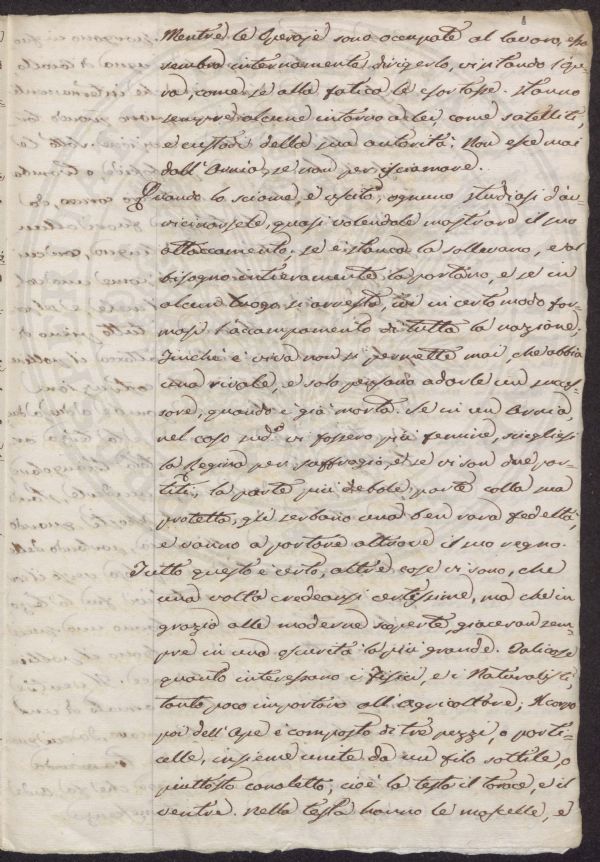 Mentre le Operaje sono occupate al lavoro, essa
sembra internamente dirigerlo, visitando l'ope-
ra, come se alla fatica le esortasse. Stanno
sempre alcune intorno a lei come satelliti,
e custodi della sua autorità; Non esce mai
dall'Arnia, se non per isciamare.
Quando lo sciame è uscito, ognuno studiasi d'av-
vicinarsele, quasi volendole mostrare il suo
attaccamento, se è stanca la sollevano, e al
bisogno intieramente la portano, e se in
alcun luogo si arresta, ivi in certo modo for-
masi l'accampamento di tutta la nazione.
Finchè è viva non si permette mai, che abbia
una rivale, e solo pensano a darle un succes-
sore, quando è già morta. Se in un Arnia,
nel caso sud.º vi fossero più femine, scegliesi
la Regina per suffragio, e se vi son due par-
titi, la parte più debole parte colla sua
protetta, gli serbano una ben rara fedeltà,
e vanno a portare altrove il suo regno.
Tutto questo è certo, altre cose vi sono, che
una volta credeansi certissime, ma che in
grazia alle moderne scoperte, giacevan sem-
pre in una oscurità la più grande. Tali cose
quanto interessano i Fisici, e i Naturalisti,
tanto poco importano all'Agricoltore; Il corpo
poi dell'Ape è composto di tre pezzi, o parti-
celle, insieme unite da un filo sottile, o
piuttosto canaletto, cioè la testa il torace, e il
ventre. Nella testa hanno le mascelle, e